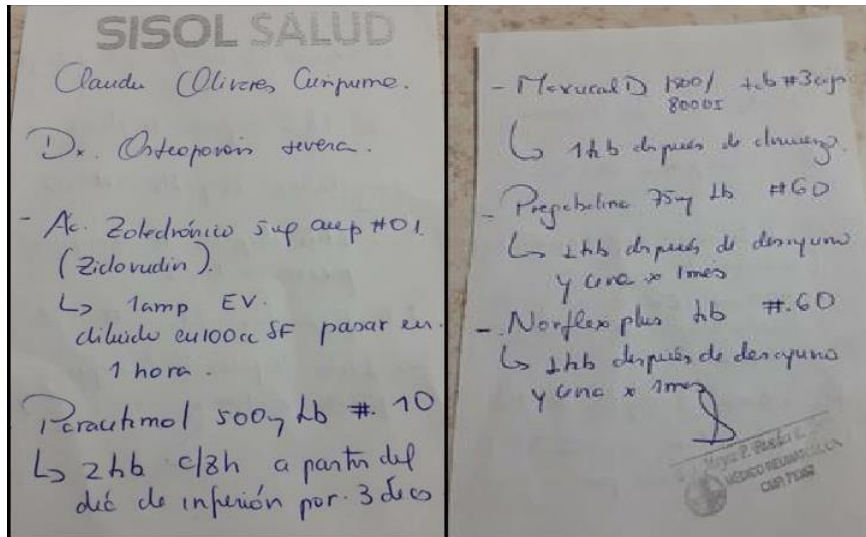 SISOL SALUD
Claudia Olivares
Dx. Osteoporosis severa.
- Ac. Zoledrónico 5mg amp #01.
(Ziclovudin).
↳ 1amp EV.
diluido en 100cc SF pasar en
1 hora.
Paracetamol 500mg tb #. 10
↳ 2tb c/8h a partir del
día de infusión por. 3 días
- D 1500/ tb #30
800UI
↳ 1tb después de almuerzo.
- Pregabalina 75mg tb #60
↳ 1tb después de desayuno
y cena x 1mes
- Norflex plus tb #.60
↳ 1tb después de desayuno
y cena x 1mes
MÉDICO REUMATÓLOGA